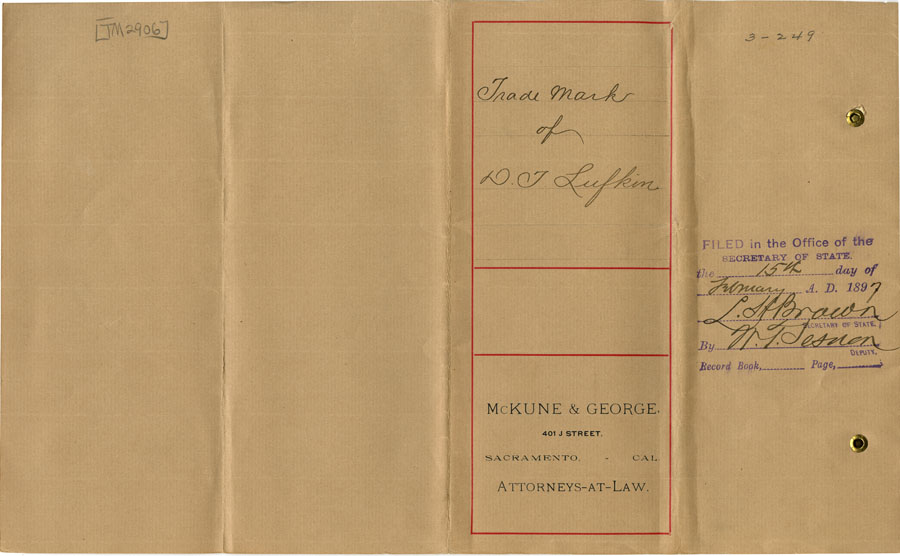 [TM2906]
Trade Mark
of
D. T Lufkin
McKUNE & GEORGE.
401 J STREET.
SACRAMENTO, - CAL
ATTORNEYS-AT-LAW.
3-249
FILED in the Office of the
SECRETARY OF STATE.
the 15th day of
February A. D. 1897
L. H. Brown
SECRETARY OF STATE.
By W. T.
DEPUTY.
Record Book, Page,